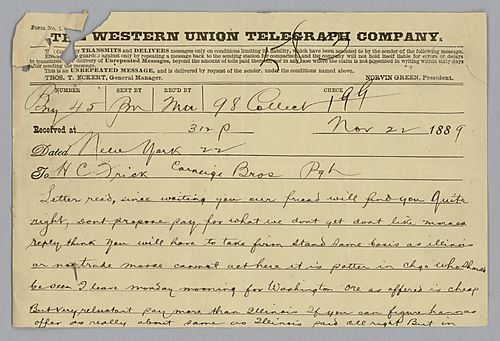 Form No. 1.
THE WESTERN UNION TELEGRAPH COMPANY.
This Company TRANSMITS and DELIVERS messages only on conditions limiting its liability, which have been assented to by the sender of the following message.
Errors can be guarded against only by repeating a message back to the sending station for comparison, and the company will not hold itself liable for errors or delays
in transmission or delivery of Unrepeated Messages, beyond the amount of tolls paid thereon, nor in any case where the claim is not presented in writing within sixty days
after sending the message.
This is an UNREPEATED MESSAGE, and is delivered by request of the sender, under the conditions named above.
THOS. T. ECKERT, General Manager. NORVIN GREEN, President.
NUMBER SENT BY REC'D BY CHECK
45 98 Collect 199
Received at 312 P Nov 22 1889
Dated New York 22
To H C Frick Carnegie Bros Pgh
Letter recd, since waiting you our friend will find you Quite
right, dont propose pay for what we dont get dont like
reply think you will have to take firm stand same basis as illinois
or no trade cannot act here it is in Chgo
be seen I leave monday morning for Washington Ore as offered is cheap
But very reluctant pay more than Illinois If you can figure
offer as really about same as Illinois paid all right But in